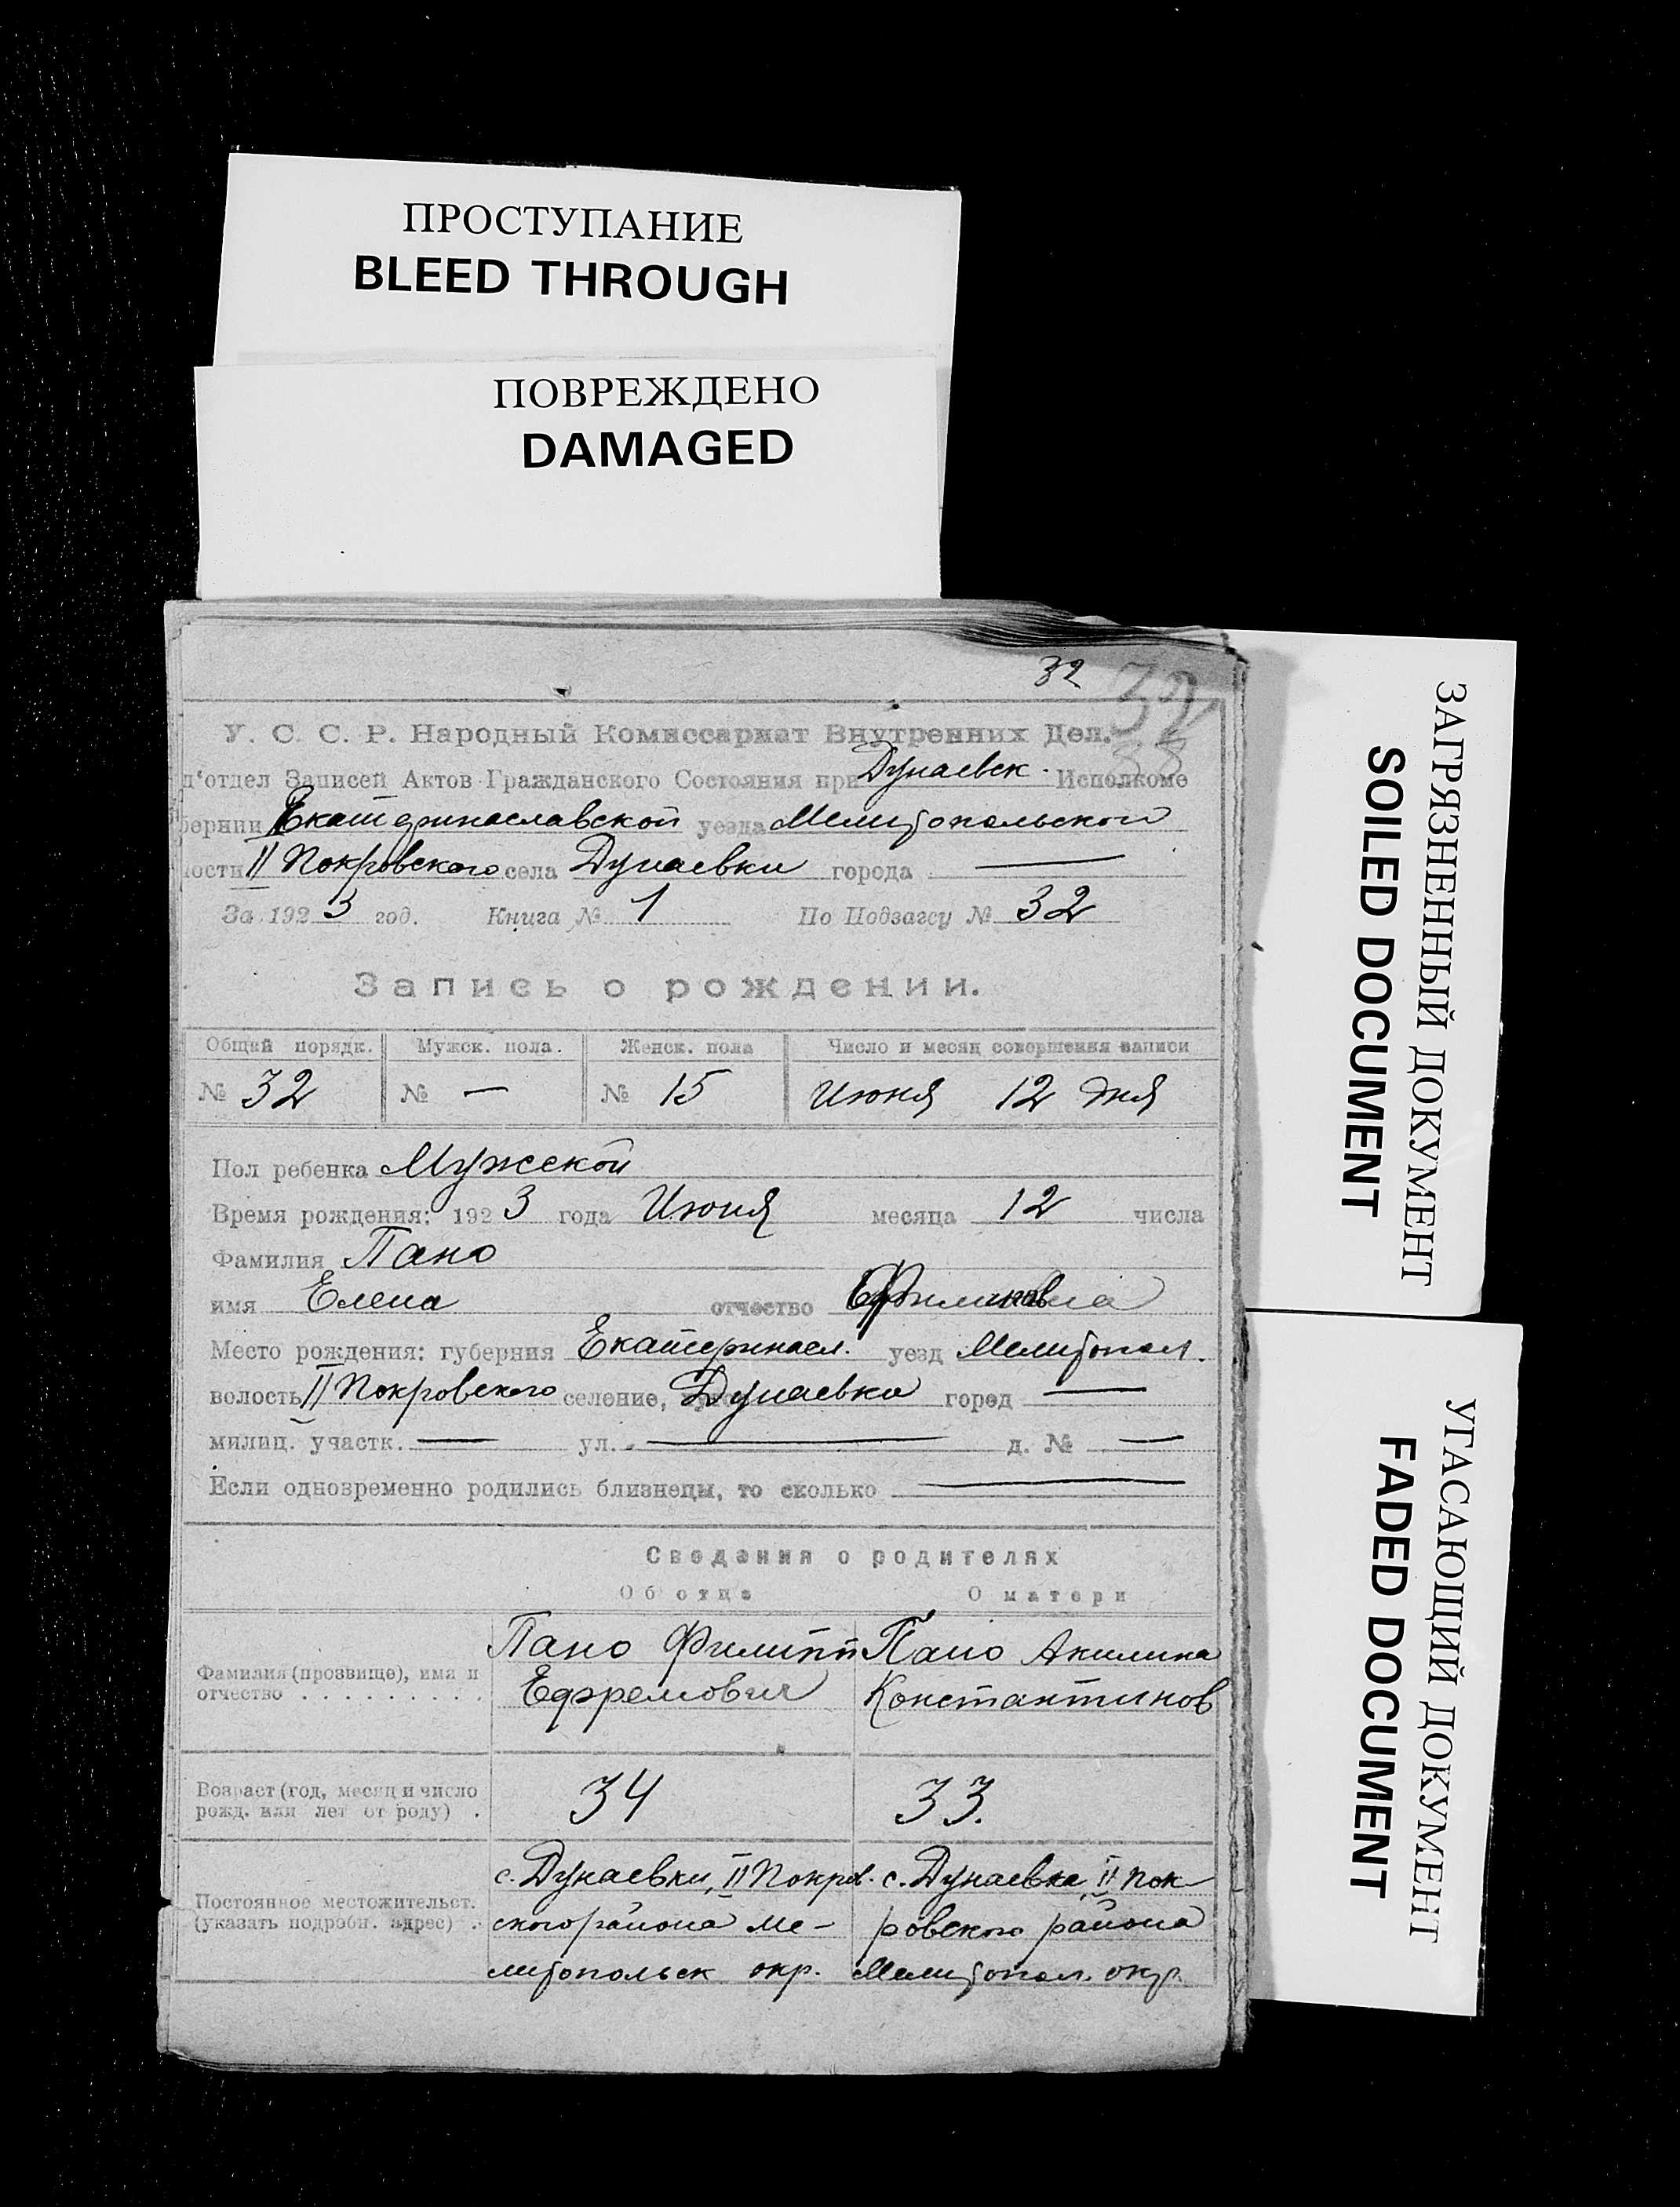 ПРОСТУПАНИЕ
BLEED THROUGH
ПОВРЕЖДЕНО
DAMAGED
32
32
У. С. С. Р. Народный Комиссариат Внутренних Дел.
д'отдел Записей Актов Гражданского Состояния при Дунаевск. Исполкоме
бернии Екатеринославской уезда Мелитопольской
лости II Покровского села Дунаевки города —
За 1923 год. Книга № 1 По Подзагсу № 32
Запись о рождении.
Общий порядк. Мужск. пола. Женск. пола Число и месяц совершения записи
№ 32 № — № 15 Июня 12 дня
Пол ребенка Мужской
Время рождения: 1923 года Июня месяца 12 числа
Фамилия Пано
имя Елена отчество
Место рождения: губерния Екатериносл. уезд Мелитопол.
волость II Покровского селение, Дунаевка город —
милиц. участк. — ул. — д. № —
Если одновременно родились близнецы, то сколько —
Сведения о родителях
Об отце О матери
Фамилия (прозвище), имя и отчество . . . . . . . . . .
Пано Филипп
Ефремович
Пано Акилина
Константинов
Возраст (год, месяц и число рожд. или лет от роду) .
34
33.
Постоянное местожительст. (указать подробн. адрес) .
с. Дунаевки, II Покров-
ского района Ме-
литопольск окр.
с. Дунаевка, II Пок-
ровского района
Мелитопол. окр.
ЗАГРЯЗНЕННЫЙ ДОКУМЕНТ
SOILED DOCUMENT
УГАСАЮЩИЙ ДОКУМЕНТ
FADED DOCUMENT